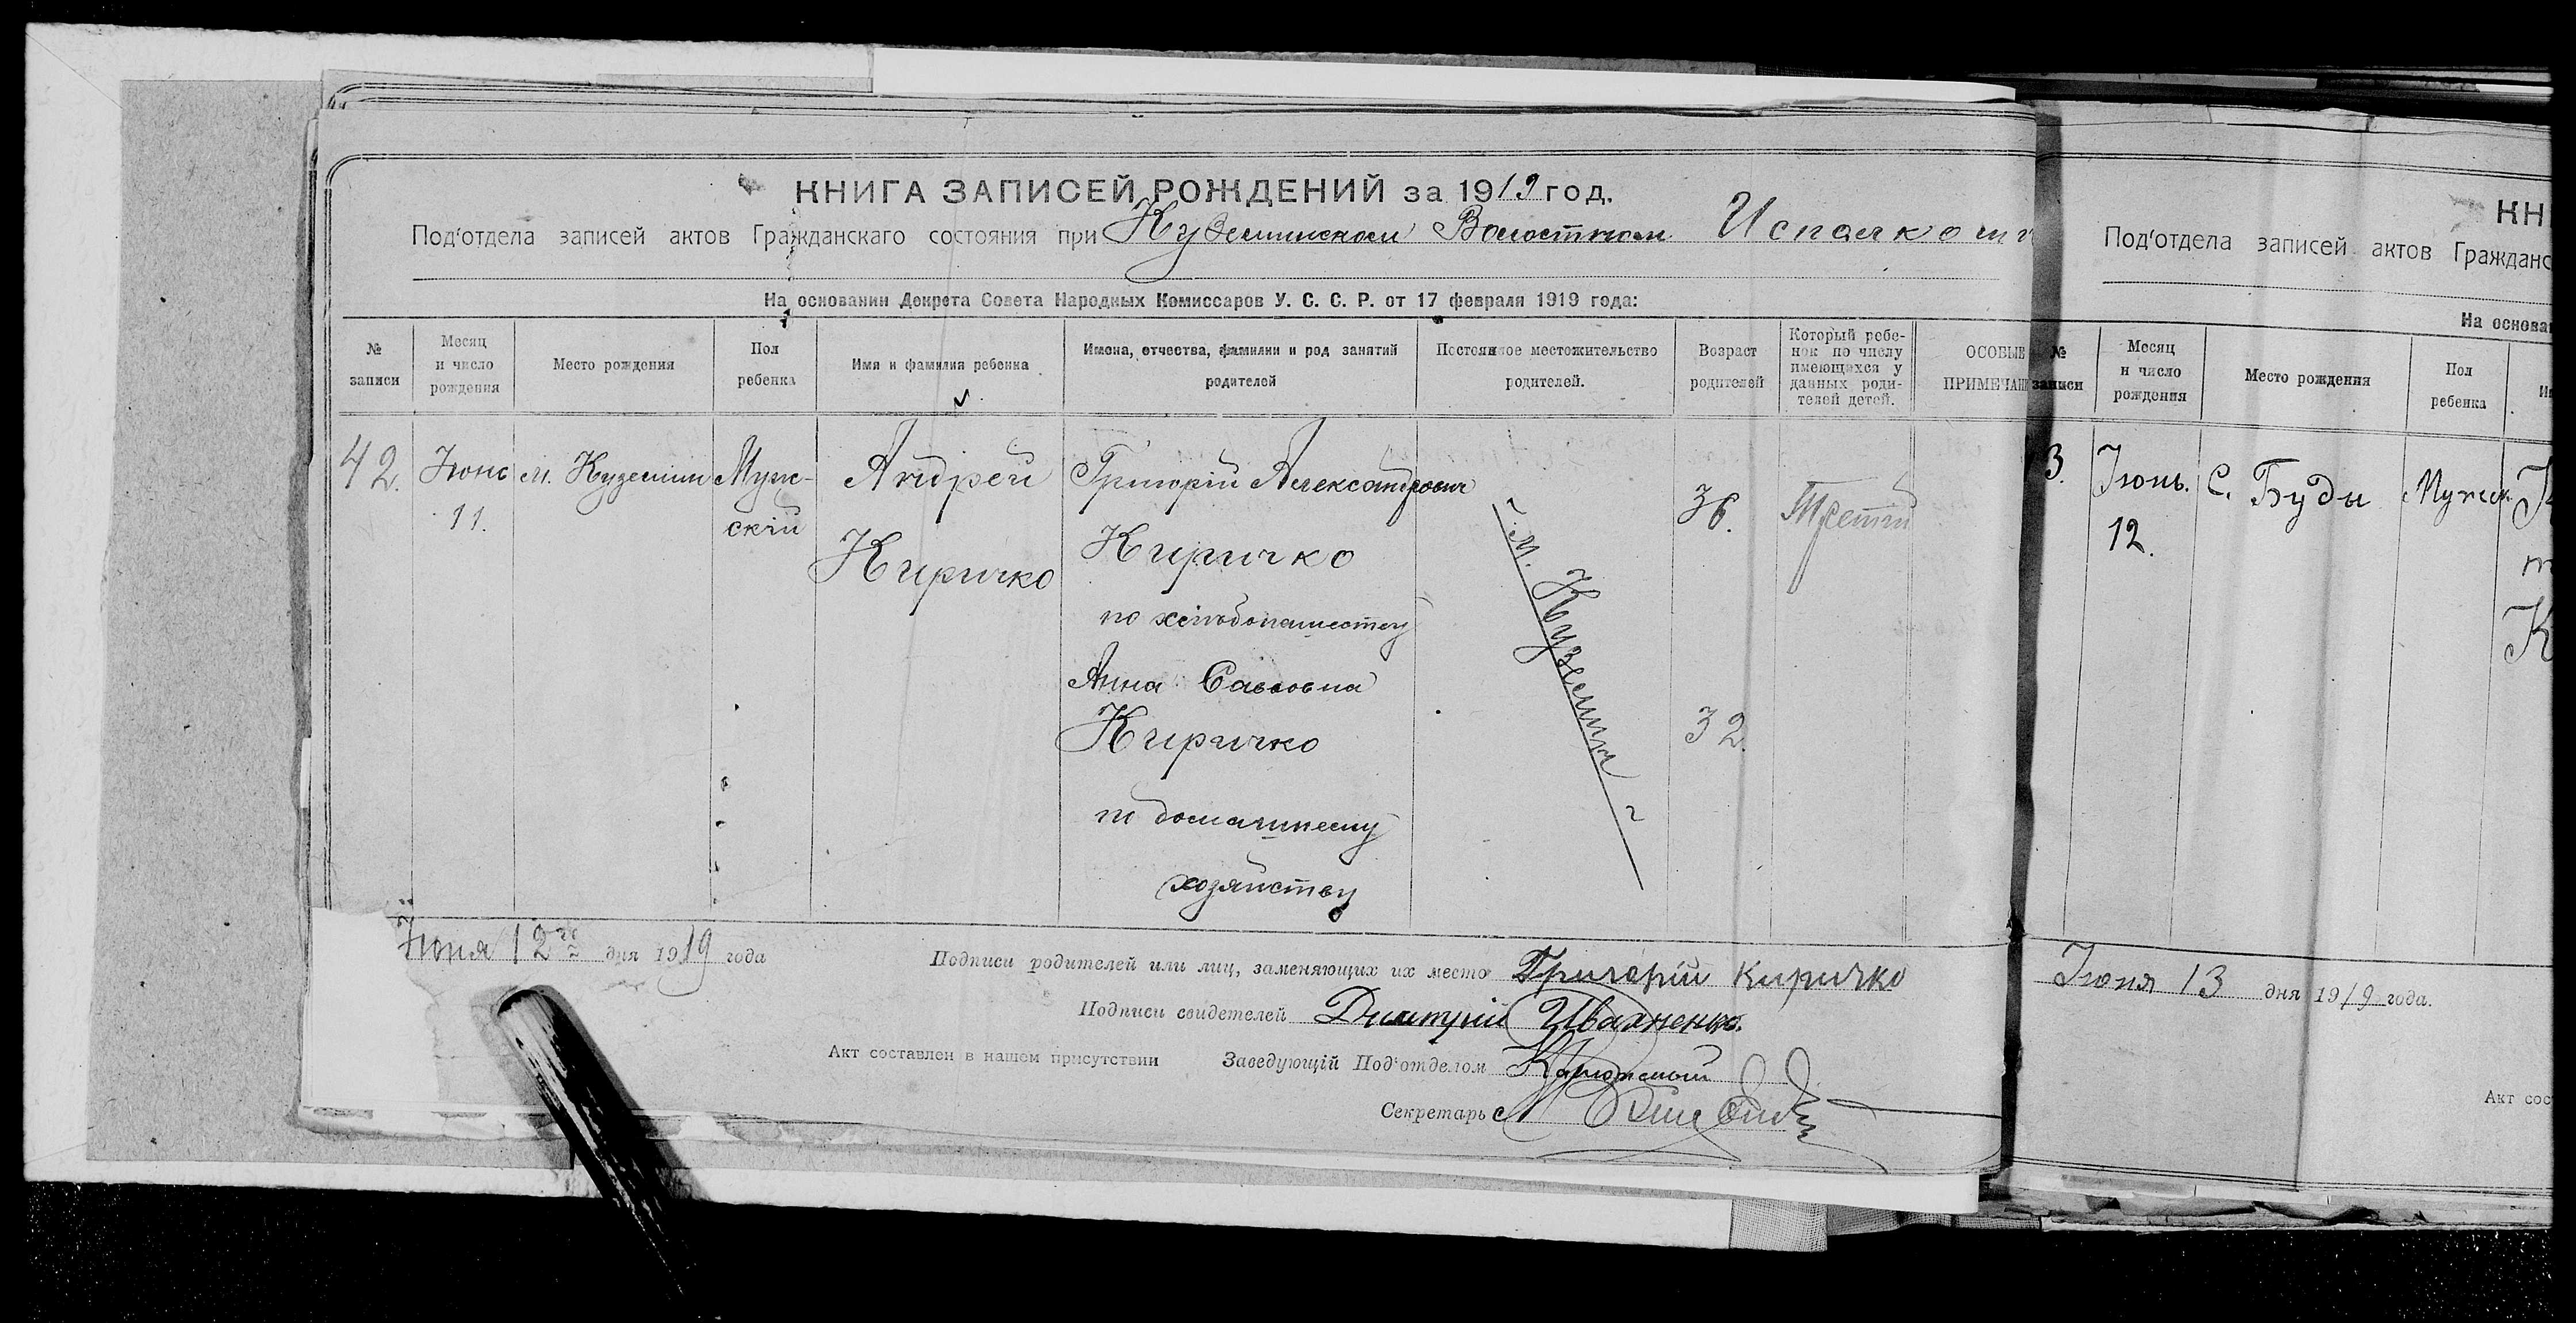 КНИГА ЗАПИСЕЙ РОЖДЕНИЙ за 1919 год.
Под'отдела записей актов Гражданскаго состояния при Куземинском Волостном Исполком
На основании Декрета Совета Народных Комиссаров У. С. С. Р. от 17 февраля 1919 года:
№ записи
Месяц и число рождения
Место рождения
Пол ребенка
Имя и фамилия ребенка
Имена, отчества, фамилии и род занятий родителей
Постоянное местожительство родителей.
Возраст родителей
Который ребе-
нок по числу
имеющихся у
данных роди-
телей детей.
ОСОБЫЕ
ПРИМЕЧАНИ
42.
Июнь
11.
м. Куземин
Муж-
ский
Андрей
Киричко
Григорій Александрович
Киричко
по хлѣбопашеству
Анна Саввовна
Киричко
по домашнему
хозяйству
м. Куземин
36.
32.
Третий
Июня 12го дня 1919 года
Подписи родителей или лиц, заменяющих их место Григорій Киричко
Подписи свидетелей Дмитрий Ивахненко.
Акт составлен в нашем присутствии Заведующій Под'отделом
Секретарь
КН
Под'отдела записей актов Гражданс
На основа
№ записи
Месяц и число рождения
Место рождения
Пол ребенка
3.
Июнь.
12.
С. Буды
Мужск.
Июня 13 дня 1919 года.
Акт сос